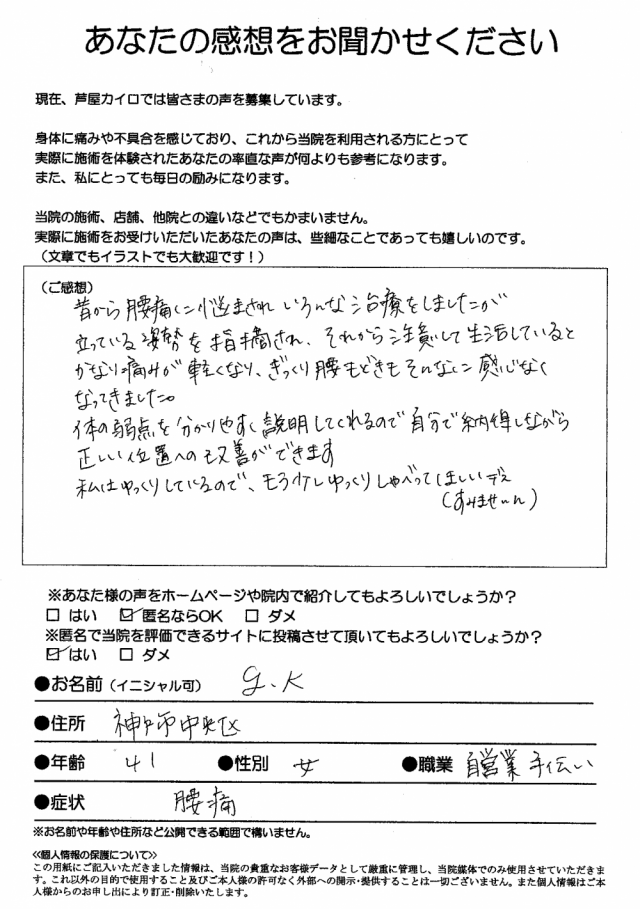 あなたの感想をお聞かせください
現在、芦屋カイロでは皆さまの声を募集しています。
身体に痛みや不具合を感じており、これから当院を利用される方にとって
実際に施術を体験されたあなたの率直な声が何よりも参考になります。
また、私にとっても毎日の励みになります。
当院の施術、店舗、他院との違いなどでもかまいません。
実際に施術をお受けいただいたあなたの声は、些細なことであっても嬉しいのです。
（文章でもイラストでも大歓迎です！）
（ご感想）
昔から腰痛に悩まされいろんな治療をしましたが
立っている姿勢を指摘され、それから注意して生活していると
かなり痛みが軽くなり、ぎっくり腰もどきもそんなに感じなく
なってきました。
体の弱点を分かりやすく説明してくれるので自分で納得しながら
正しい位置への改善ができます
私はゆっくりしているので、もう少しゆっくりしゃべってほしいデス
(すみませーん)
※あなた様の声をホームページや院内で紹介してもよろしいでしょうか？
□ はい ☑ 匿名ならOK □ ダメ
※匿名で当院を評価できるサイトに投稿させて頂いてもよろしいでしょうか？
☑ はい □ ダメ
●お名前（イニシャル可） G.K
●住所 神戸市中央区
●年齢 41 ●性別 女 ●職業 自営業手伝い
●症状 腰痛
※お名前や年齢や住所など公開できる範囲で構いません。
≪個人情報の保護について≫
この用紙にご記入いただきました情報は、当院の貴重なお客様データとして厳重に管理し、当院媒体でのみ使用させていただきま
す。これ以外の目的で使用すること及びご本人様の許可なく外部への開示・提供することは一切ございません。また個人情報はご本
人様からのお申し出により訂正・削除いたします。